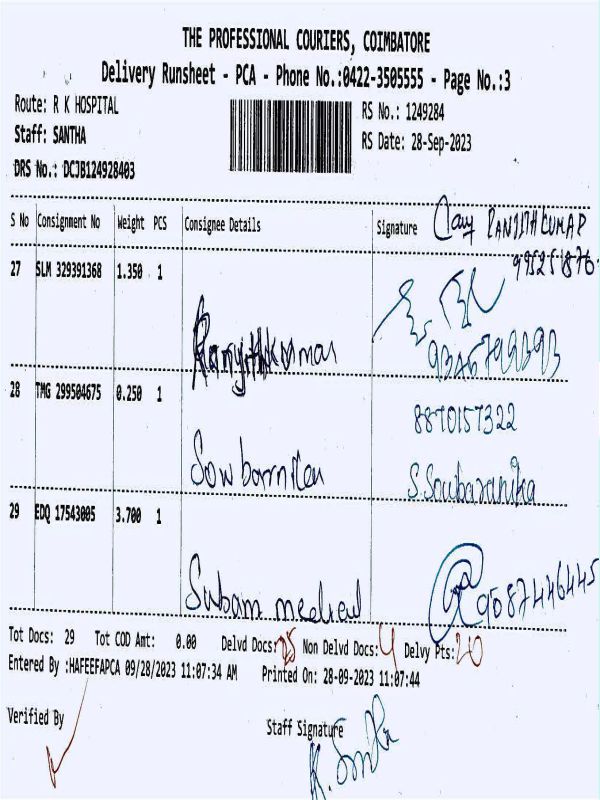 THE PROFESSIONAL COURIERS, COIMBATORE
Delivery Runsheet - PCA - Phone No.:0422-3505555 - Page No.:3
Route: R K HOSPITAL
RS No.: 1249284
Staff: SANTHA
RS Date: 28-Sep-2023
DRS No.: DCJB124928403
S No Consignment No Weight PCS Consignee Details Signature RANJITH KUMAR
27 SLM 329391368 1.350 1
Ranjithkumar
28 TMG 299504675 0.250 1
8870157322
Sowbarnika S.Soubaranika
29 EDQ 17543005 3.700 1
Subam medical 9087446445
Tot Docs: 29 Tot COD Amt: 0.00 Delvd Docs: 25 Non Delvd Docs: 4 Delvy Pts: 20
Entered By :HAFEEFAPCA 09/28/2023 11:07:34 AM Printed On: 28-09-2023 11:07:44
Verified By
Staff Signature